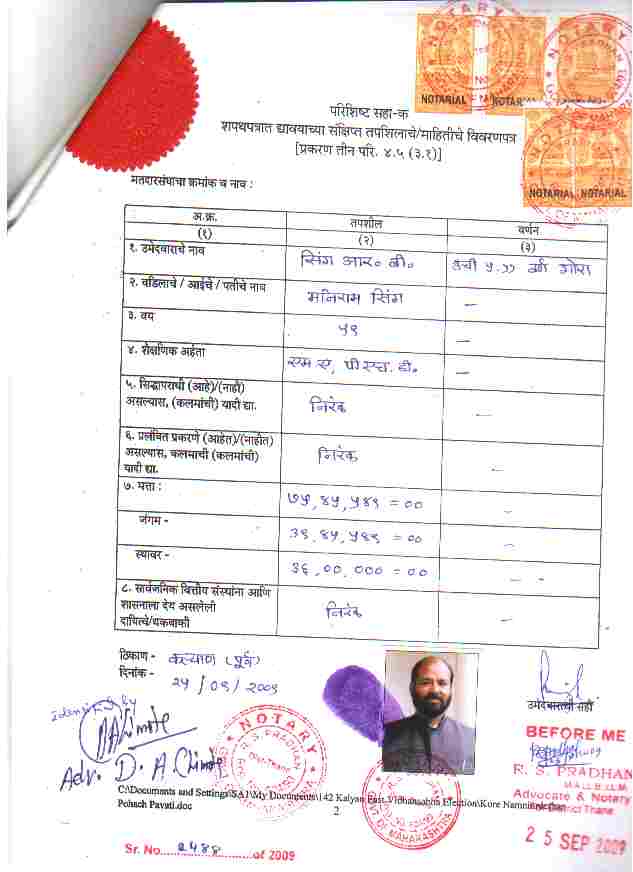 NOTARY
NOTARIAL
NOTARIAL
NOTARIAL NOTARIAL
परिशिष्ट सहा-क
शपथपत्रात द्यावयाच्या संक्षिप्त तपशिलाचे/माहितीचे विवरणपत्र
[प्रकरण तीन परि. ४.५ (३.१)]
मतदारसंघाचा क्रमांक व नाव :
अ.क्र. तपशील वर्णन
(१) (२) (३)
१. उमेदवाराचे नाव सिंग आर० बी० उंची वर्ण गोरा
२. वडिलांचे / आईचे / पतीचे नाव मनिराम सिंग –
३. वय ५९ –
४. शैक्षणिक अर्हता एम ए, पी एच. डी. –
५. सिद्धापराधी (आहे)/(नाही)
असल्यास, (कलमांची) यादी द्या. निरंक –
६. प्रलंबित प्रकरणे (आहेत)/(नाहीत)
असल्यास, कलमाची (कलमांची)
यादी द्या. निरंक –
७. मत्ता : ७५,४५,५४९ = ०० –
जंगम - ३९,४५,५४९ = ०० –
स्थावर - ३६,००,००० = ०० – –
८. सार्वजनिक वित्तीय संस्थांना आणि
शासनाला देय असलेली
दायित्वे/थकबाकी निरंक –
ठिकाण - कल्याण (पूर्व)
दिनांक - २५/०९/२००९
उमेदवाराची सही
Adv. D. A. Chimote
NOTARY
R. S. PRADHAN
GOVT. OF MAHARASHTRA
BEFORE ME
R. S. PRADHAN
Advocate & Notary
District Thane.
25 SEP 2009
C:\Documents and Settings\SA1\My Documents\142 Kalyan East Vidhansabha Election\Kore Namnirdeshan
Pohach Pavati.doc
2
Sr. No. 2488 of 2009